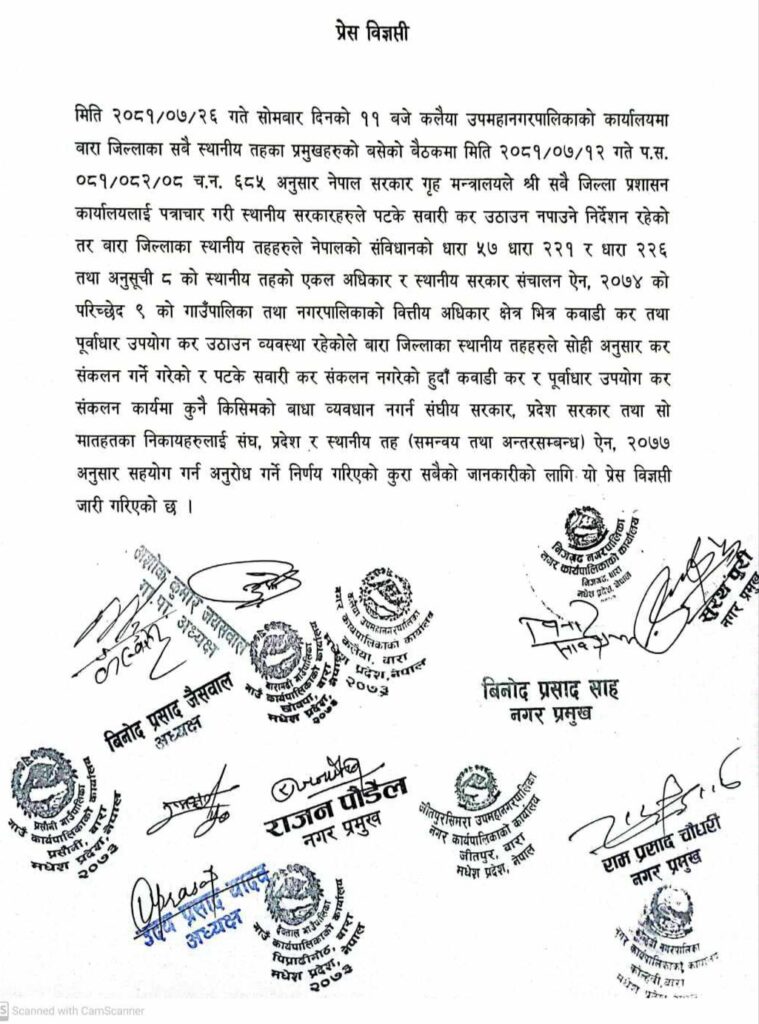 प्रेस विज्ञप्ती
मिति २०८१/०७/२६ गते सोमवार दिनको ११ बजे कलैया उपमहानगरपालिकाको कार्यालयमा
बारा जिल्लाका सबै स्थानीय तहका प्रमुखहरुको बसेको बैठकमा मिति २०८१/०७/१२ गते प.स.
०८१/०८२/०८ च.न. ६८५ अनुसार नेपाल सरकार गृह मन्त्रालयले श्री सबै जिल्ला प्रशासन
कार्यालयलाई पत्राचार गरी स्थानीय सरकारहरुले पटके सवारी कर उठाउन नपाउने निर्देशन रहेको
तर बारा जिल्लाका स्थानीय तहहरुले नेपालको संविधानको धारा ५७ धारा २२१ र धारा २२६
तथा अनुसूची ८ को स्थानीय तहको एकल अधिकार र स्थानीय सरकार संचालन ऐन, २०७४ को
परिच्छेद ९ को गाउँपालिका तथा नगरपालिकाको वित्तीय अधिकार क्षेत्र भित्र कवाडी कर तथा
पूर्वाधार उपयोग कर उठाउन व्यवस्था रहेकोले बारा जिल्लाका स्थानीय तहहरुले सोही अनुसार कर
संकलन गर्ने गरेको र पटके सवारी कर संकलन नगरेको हुदाँ कवाडी कर र पूर्वाधार उपयोग कर
संकलन कार्यमा कुनै किसिमको बाधा व्यवधान नगर्न संघीय सरकार, प्रदेश सरकार तथा सो
मातहतका निकायहरुलाई संघ, प्रदेश र स्थानीय तह (समन्वय तथा अन्तरसम्बन्ध) ऐन, २०७७
अनुसार सहयोग गर्न अनुरोध गर्ने निर्णय गरिएको कुरा सबैको जानकारीको लागि यो प्रेस विज्ञप्ती
जारी गरिएको छ ।
निजगढ नगरपालिका
नगर कार्यपालिकाको कार्यालय
निजगढ, बारा
मधेश प्रदेश, नेपाल
सुरथ पुरी
नगर प्रमुख
अशोक कुमार जयसवाल
गा.पा. अध्यक्ष
कलैया उपमहानगरपालिका
नगर कार्यपालिकाको कार्यालय
कलैया, बारा
मधेश प्रदेश, नेपाल
२०७३
बारागढी गाउँपालिका
गाउँ कार्यपालिकाको कार्यालय
मधेश प्रदेश, नेपाल
२०७३
बिनोद प्रसाद साह
नगर प्रमुख
बिनोद प्रसाद जैसवाल
अध्यक्ष
प्रसौनी गाउँपालिका
गाउँ कार्यपालिकाको कार्यालय
प्रसौनी, बारा
मधेश प्रदेश, नेपाल
२०७३
राजन पौडेल
नगर प्रमुख
जीतपुरसिमरा उपमहानगरपालिका
नगर कार्यपालिकाको कार्यालय
जीतपुर, बारा
मधेश प्रदेश, नेपाल
राम प्रसाद चौधरी
नगर प्रमुख
Oprasad
प्रसाद यादव
अध्यक्ष
गाउँ कार्यपालिकाको कार्यालय
मधेश प्रदेश, नेपाल
२०७३
कोल्हवी नगरपालिका
नगर कार्यपालिकाको कार्यालय
कोल्हवी, बारा
मधेश प्रदेश, नेपाल
Scanned with CamScanner